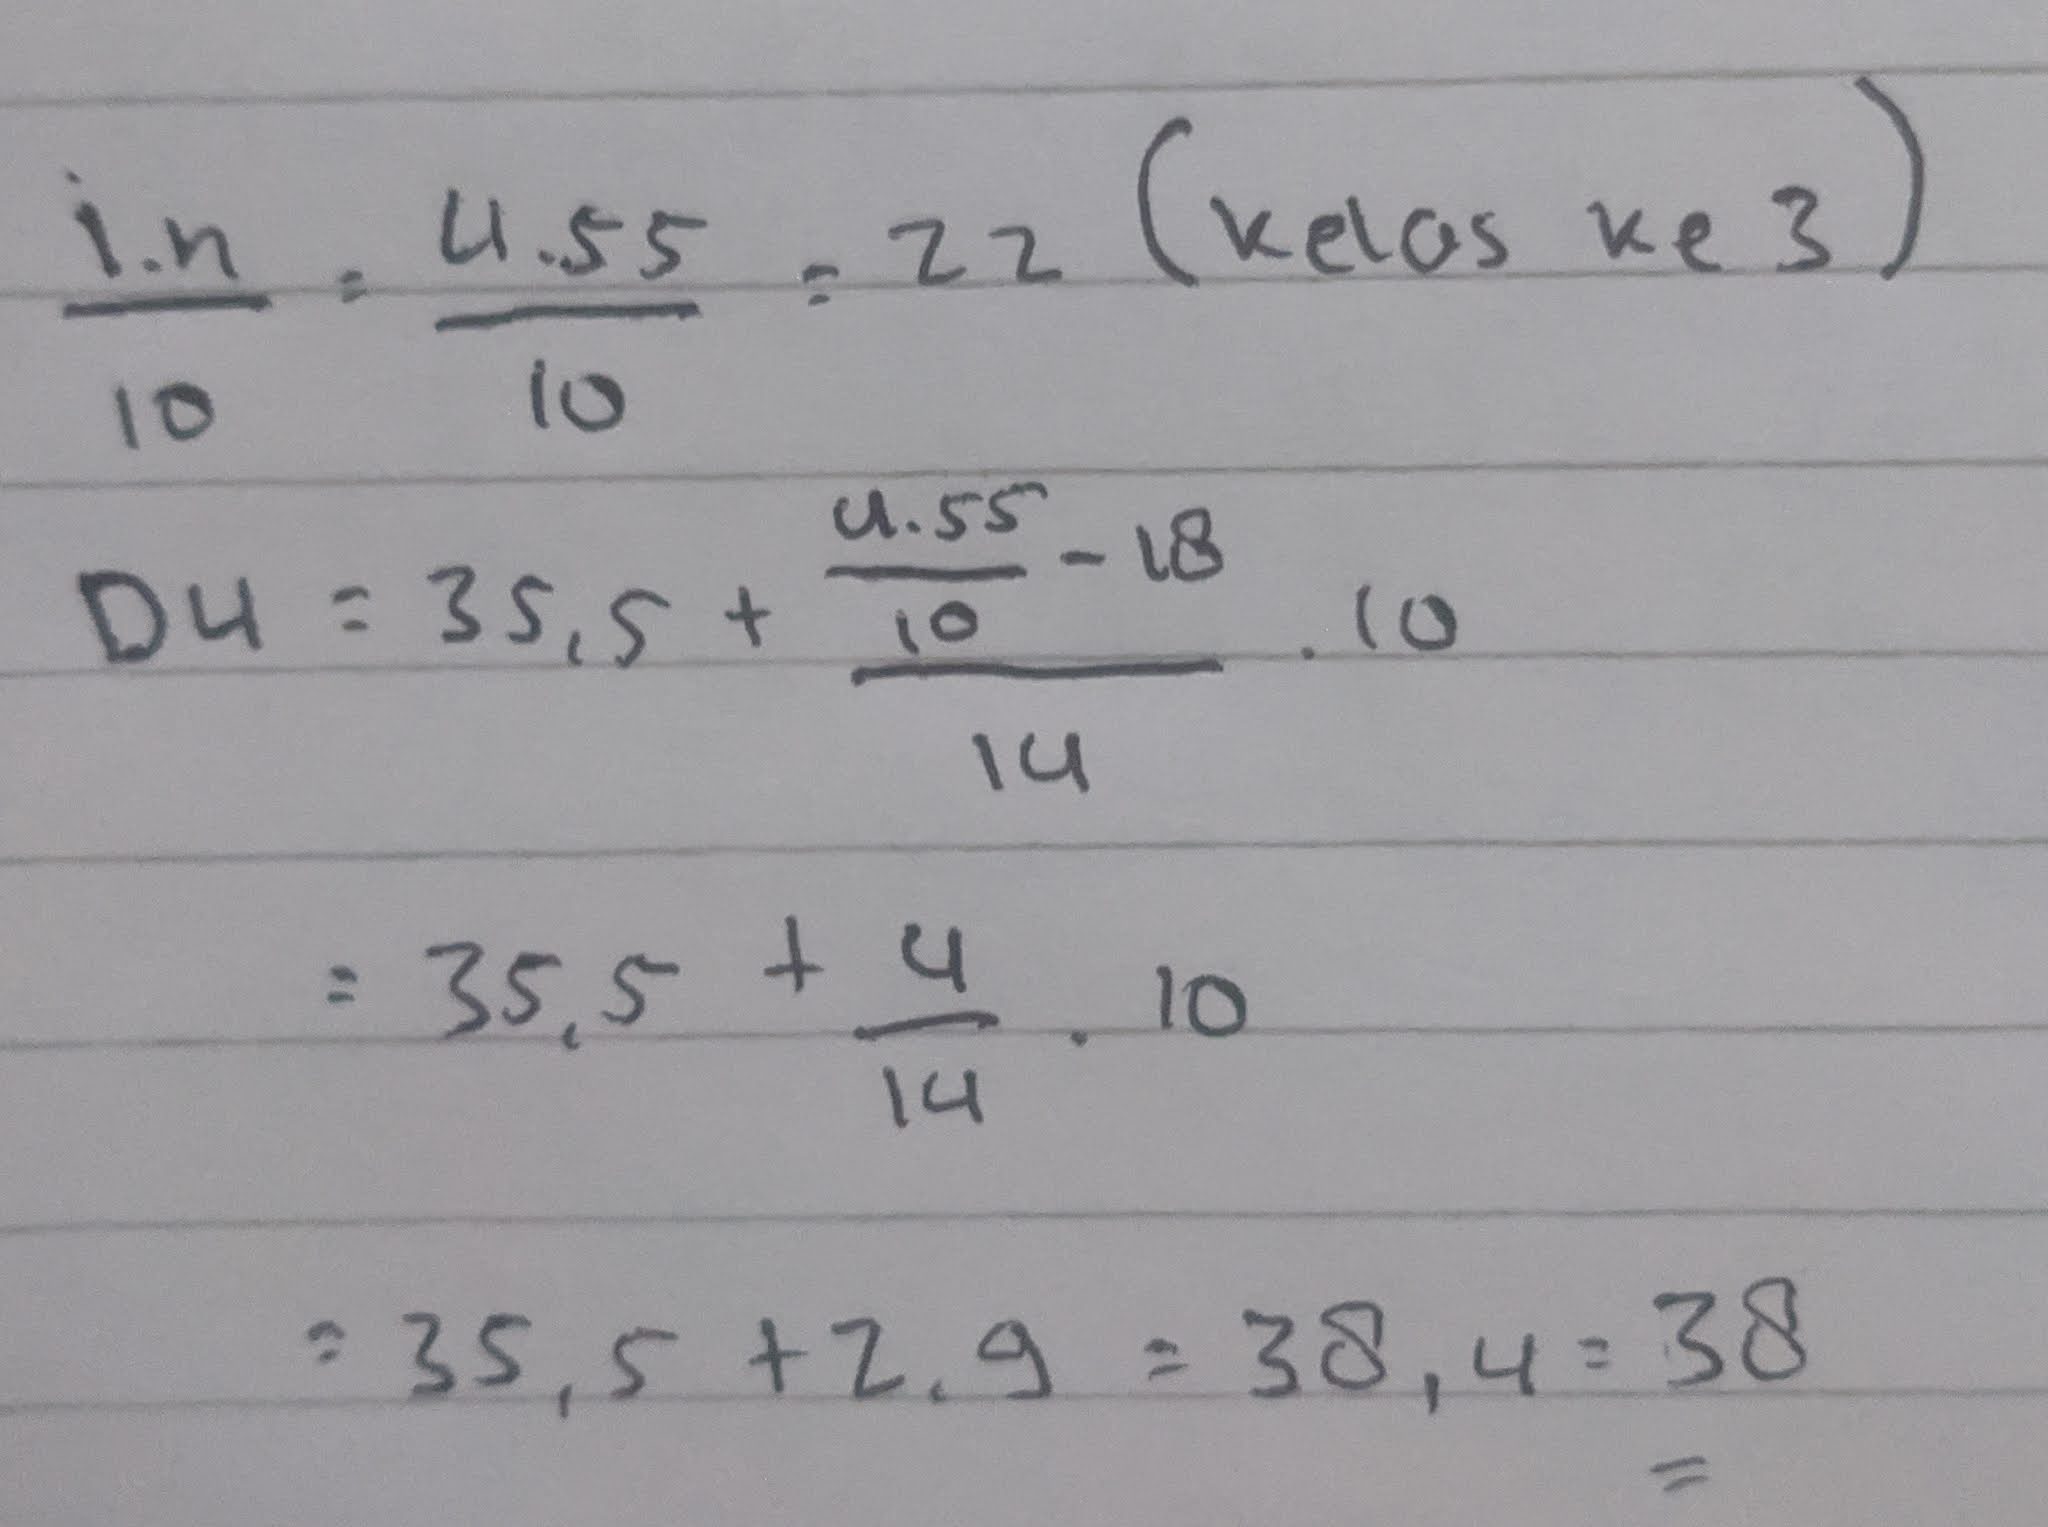 i.n/10 = 4.55/10 = 22 (kelas ke 3)
D4 = 35,5 + (4.55/10 - 18)/14 . 10
= 35,5 + 4/14 . 10
= 35,5 + 2,9 = 38,4 = 38
=